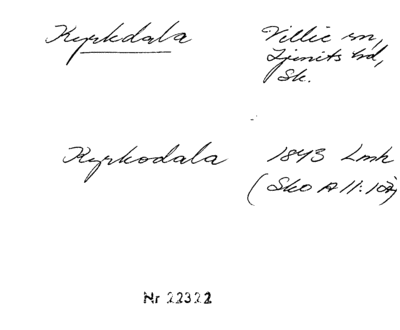 Kyrkdala Villie sn,
Ljunits hd,
Sk.
Kyrkodala 1843 Lmh
(Sko A II:10
Nr 22322